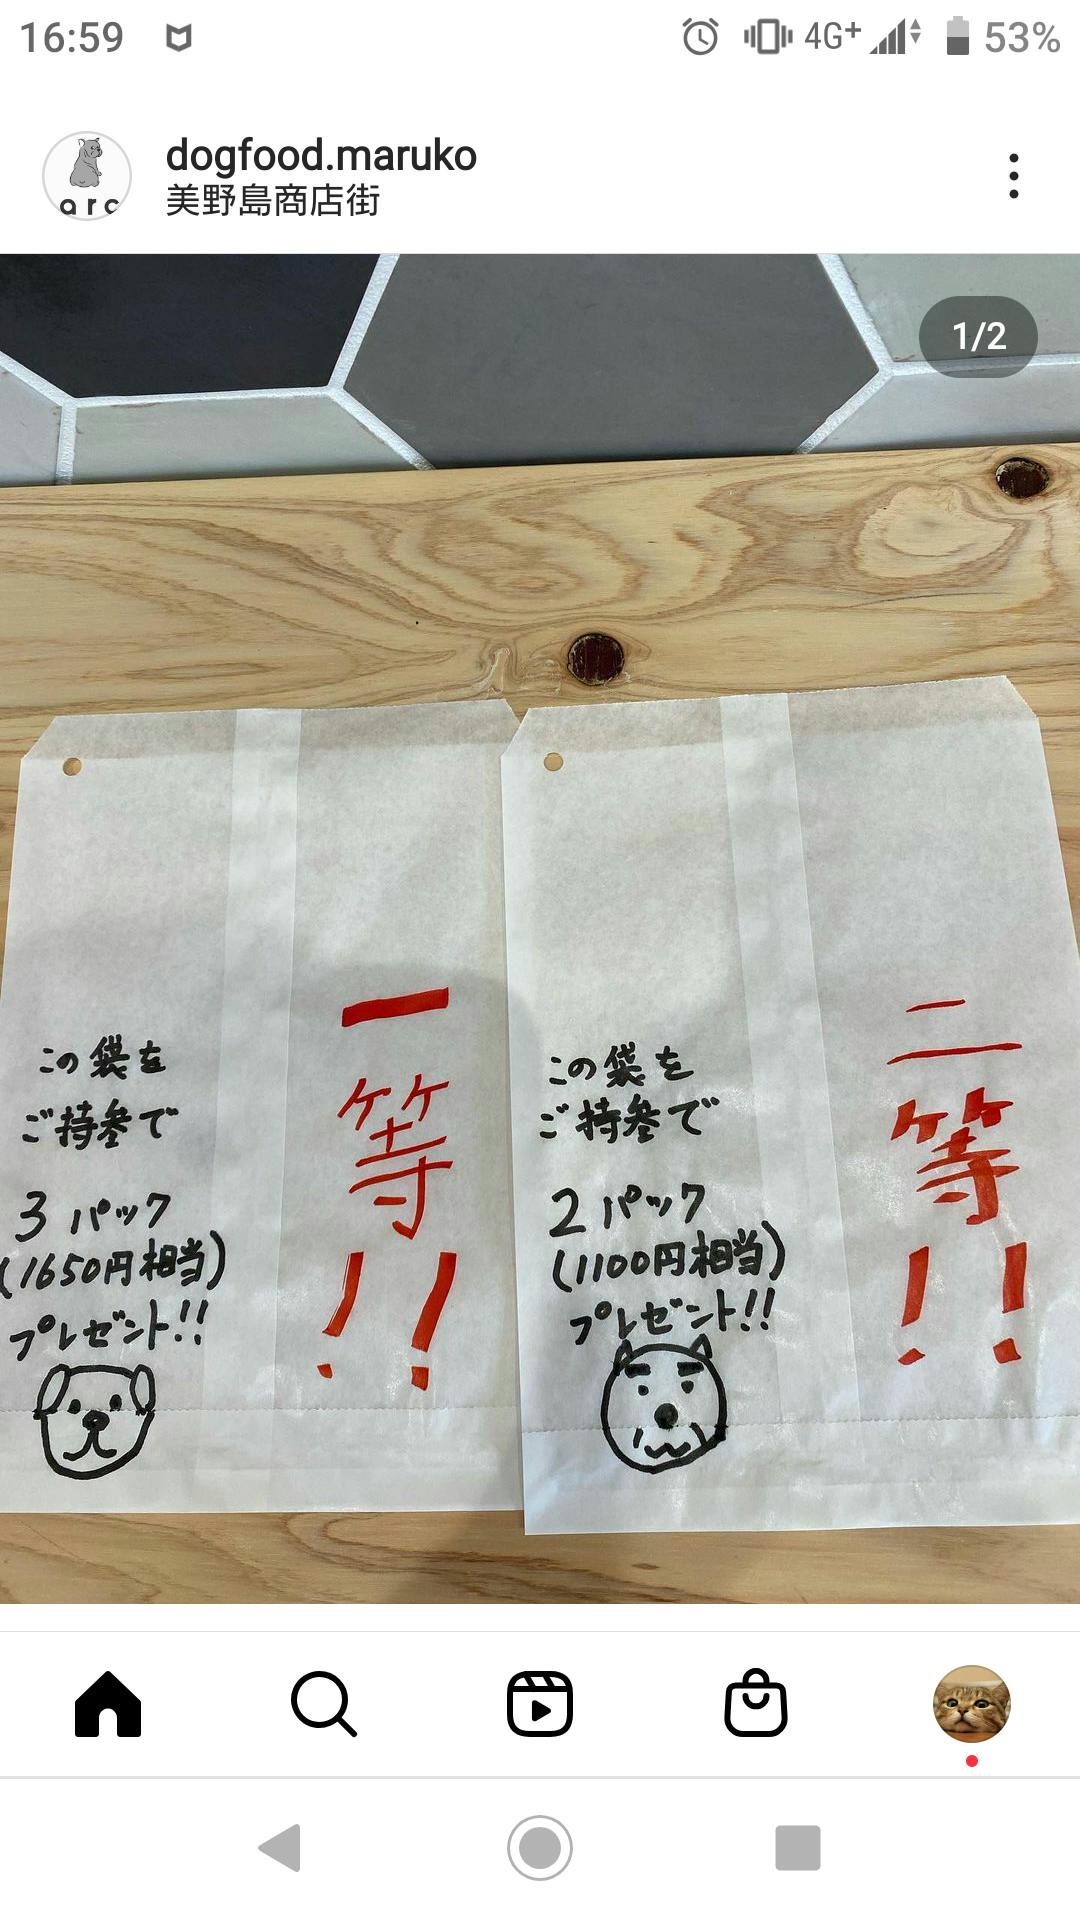 16:59
4G+
53%
dogfood.maruko
美野島商店街
arc
1/2
一等!!
この袋を
ご持参で
3パック
(1650円相当)
プレゼント!!
二等!!
この袋を
ご持参で
2パック
(1100円相当)
プレゼント!!